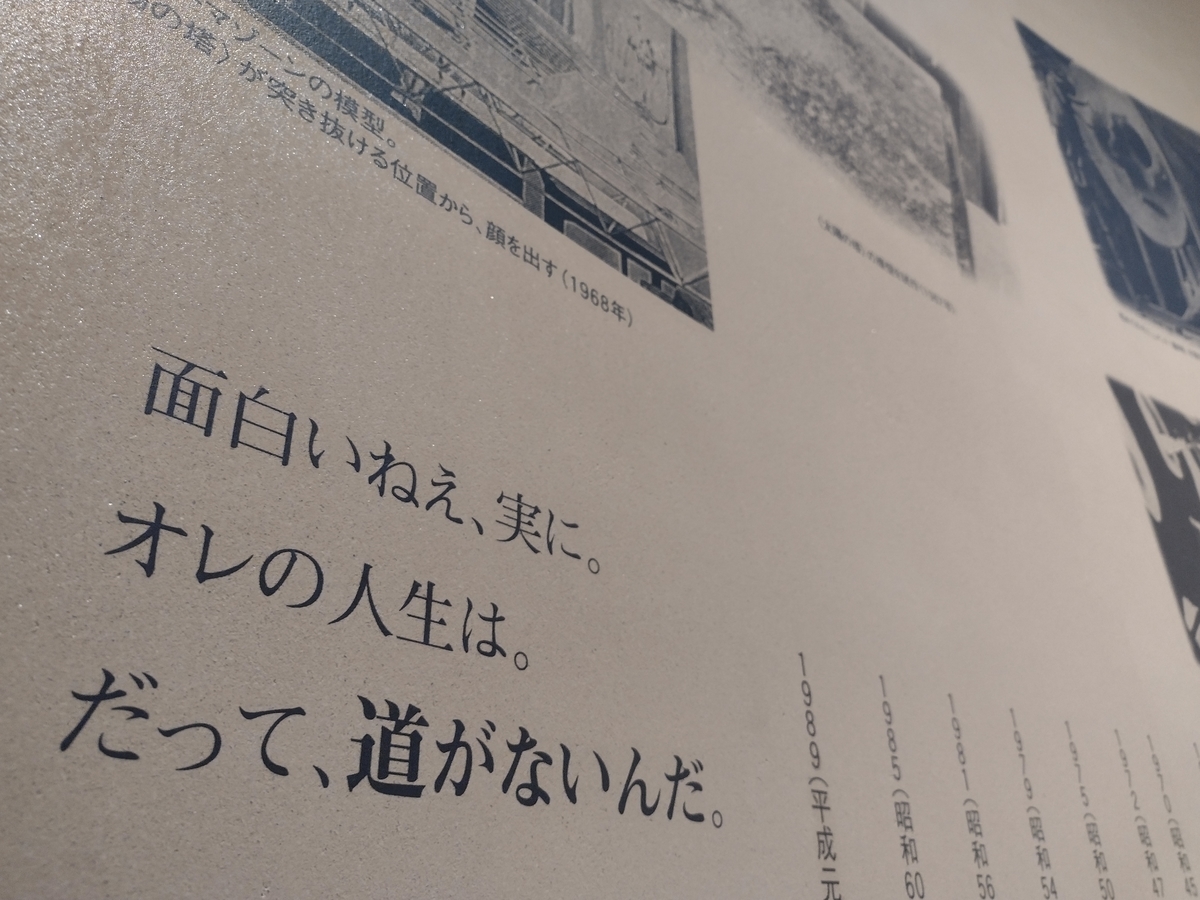 マゾーンの模型。
の塔〉が突き抜ける位置から、顔を出す（1968年）
面白いねえ、実に。
オレの人生は。
だって、道がないんだ。
1989（平成元
1985（昭和60
1981（昭和56
1979（昭和54
1975（昭和50
1972（昭和47
1970（昭和45